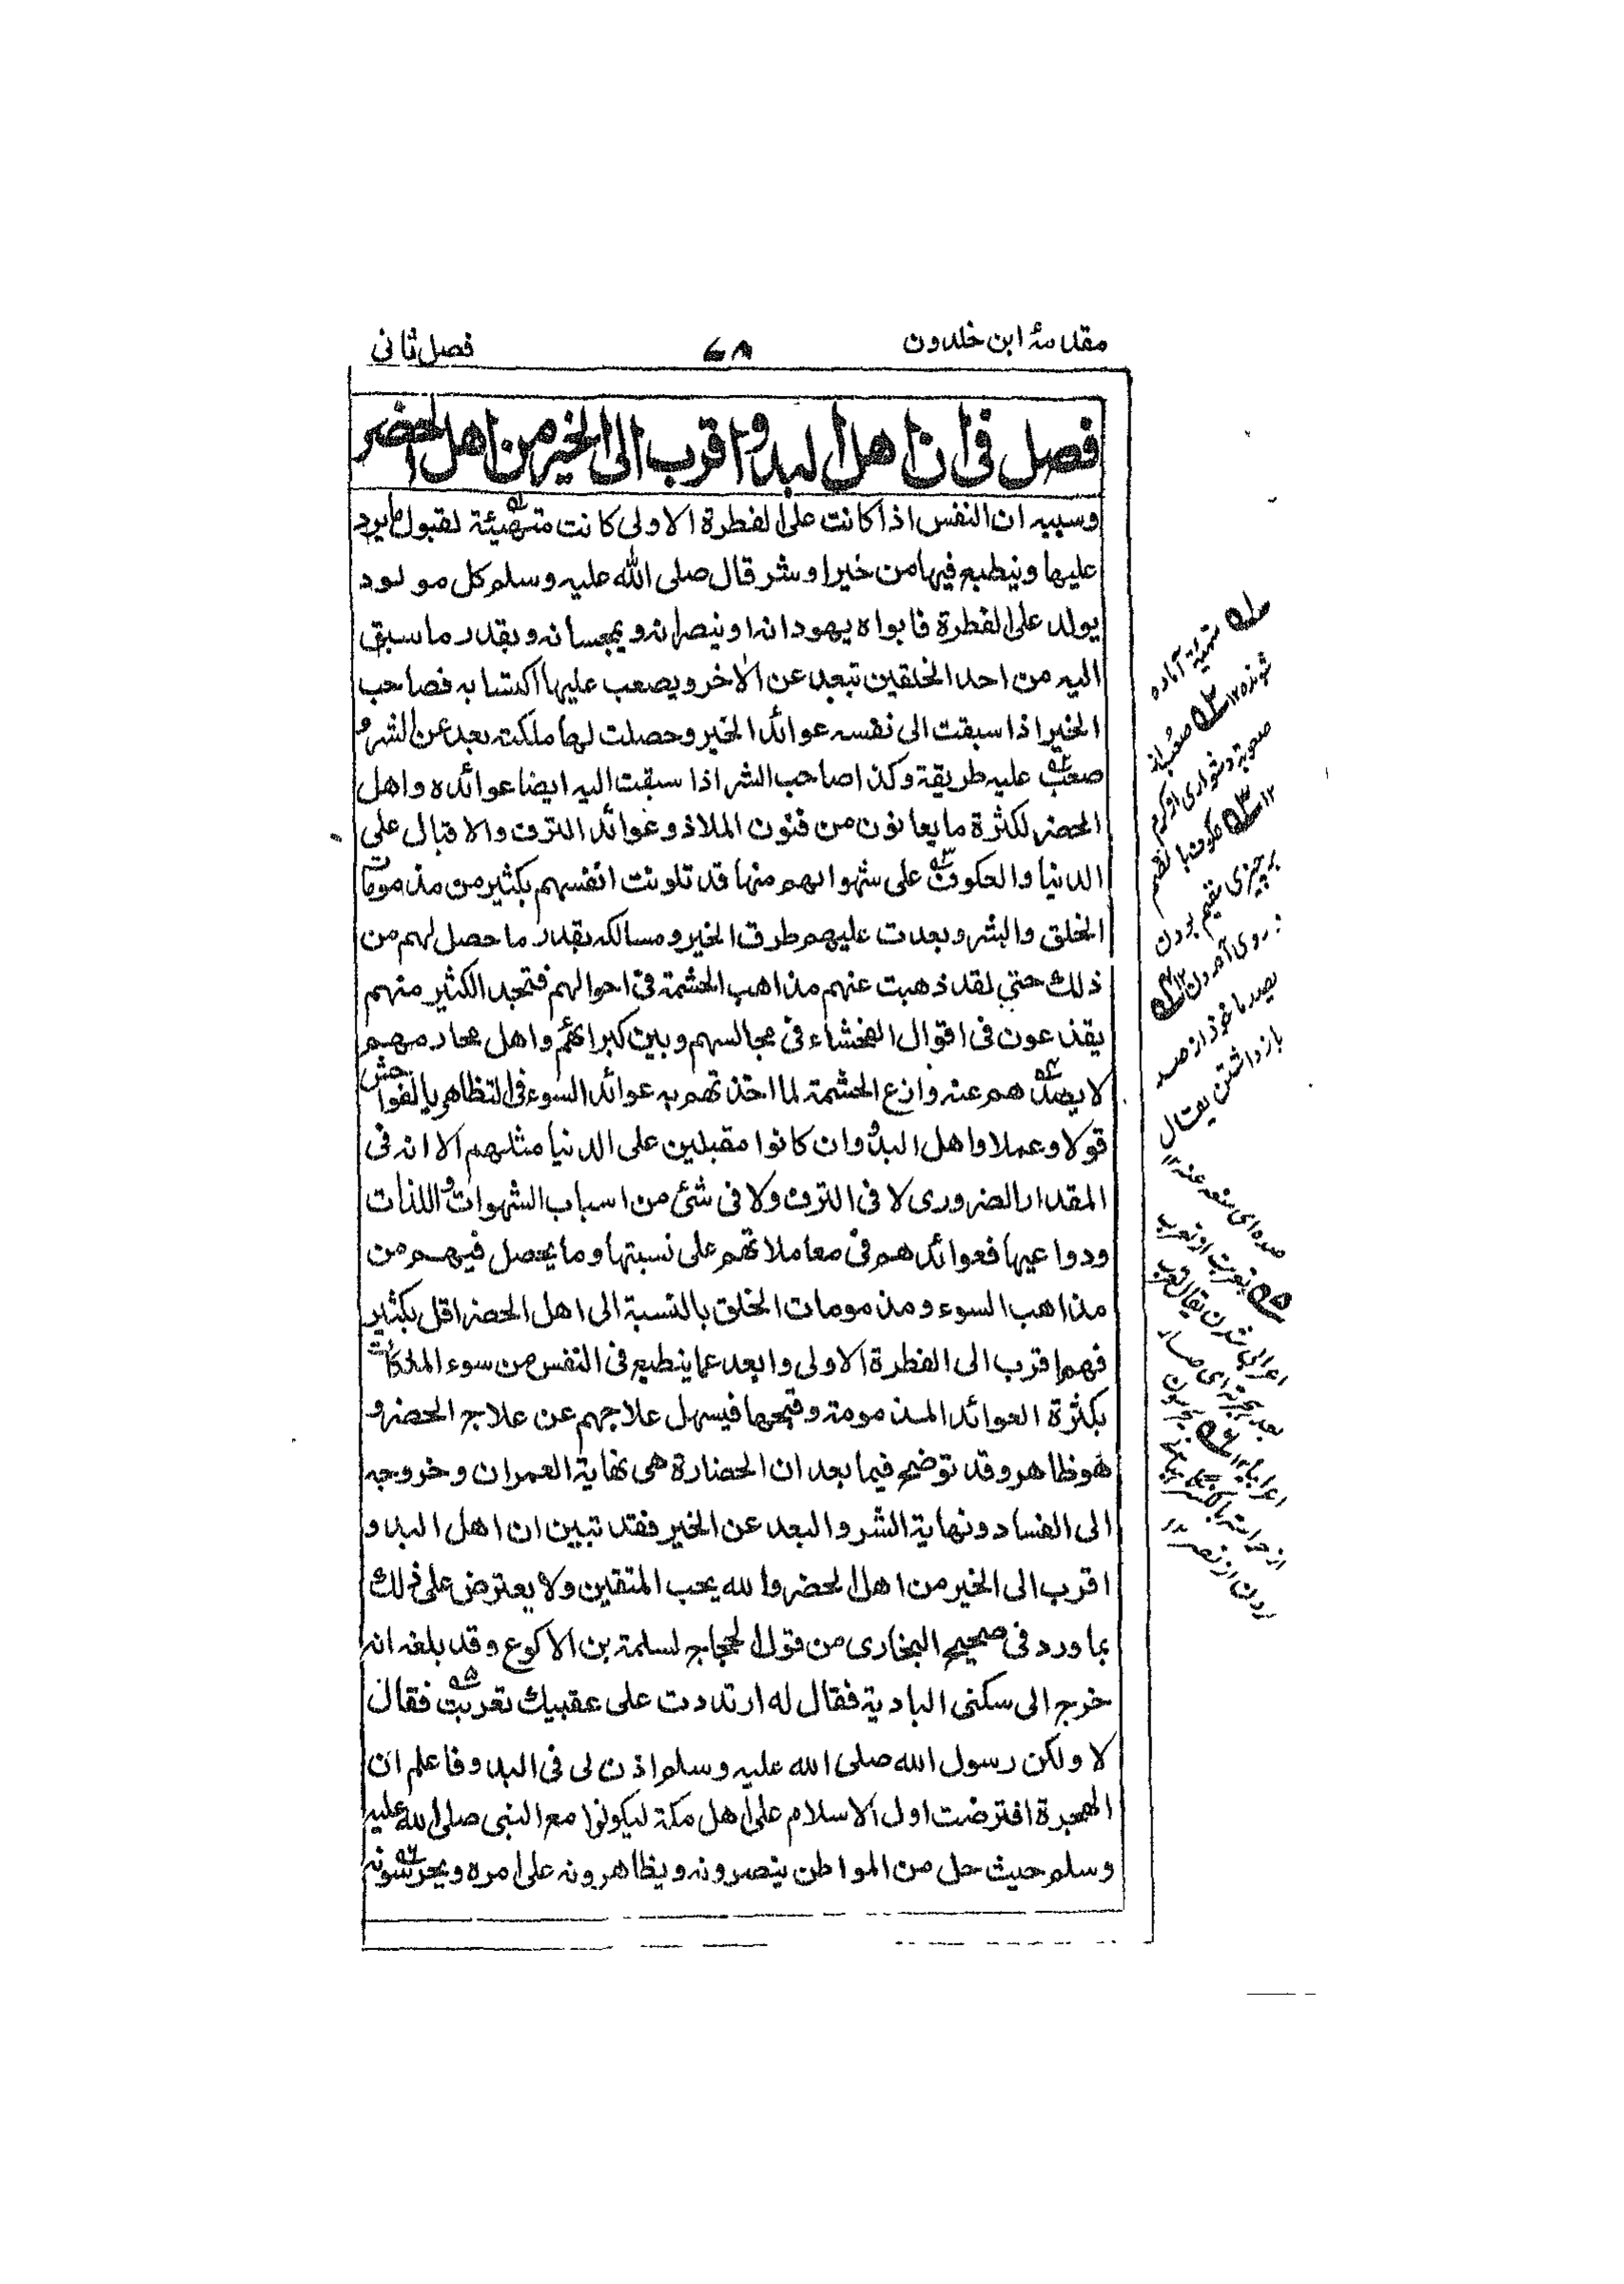 مقدمۂ ابن خلدون
۶۸
فصل ثانی
فصل فی ان اهل البدو اقرب الی الخیر من اهل الحضر
وسببه ان النفس اذا کانت علی الفطرة الاولی کانت متهیئة لقبول ما یرد
علیها وینطبع فیها من خیر او شر قال صلی الله علیه وسلم کل مولود
یولد علی الفطرة فابواه یهودانه او ینصرانه ویمجسانه وبقدر ما سبق
الیه من احد الخلقین تبعد عن الاٰخر ویصعب علیها اکتسابه فصاحب
الخیر اذا سبقت الی نفسه عوائد الخیر وحصلت لها ملکته بعد عن الشر و
صعب علیه طریقة وکذا صاحب الشر اذا سبقت الیه ایضا عوائده واهل
الحضر لکثرة ما یعانون من فنون الملاذ وعوائد الترف والاقبال علی
الدنیا والعکوف علی شهواتهم منها قد تلونت انفسهم بکثیر من مذمومات
الخلق والشر وبعدت علیهم طرق الخیر ومسالکه بقدر ما حصل لهم من
ذلك حتی لقد ذهبت عنهم مذاهب الحشمة فی احوالهم فتجد الکثیر منهم
یقذعون فی اقوال الفحشاء فی مجالسهم وبین کبرائهم واهل محارمهم
لا یصدهم عنه وازع الحشمة لما اخذتهم به عوائد السوء فی التظاهر بالفواحش
قولا وعملا واهل البدو وان کانوا مقبلین علی الدنیا مثلهم الا انه فی
المقدار الضروری لا فی الترف ولا فی شئ من اسباب الشهوات واللذات
ودواعیها فعوائدهم فی معاملاتهم علی نسبتها وما یحصل فیهم من
مذاهب السوء ومذمومات الخلق بالنسبة الی اهل الحضر اقل بکثیر
فهم اقرب الی الفطرة الاولی وابعد عما ینطبع فی النفس من سوء الملکات
بکثرة العوائد المذمومة وقبحها فیسهل علاجهم عن علاج الحضر و
هو ظاهر وقد توضح فیما بعد ان الحضارة هی نهایة العمران وخروجه
الی الفساد ونهایة الشر والبعد عن الخیر فقد تبین ان اهل البدو
اقرب الی الخیر من اهل الحضر والله یحب المتقین ولا یعترض علی ذلك
بما ورد فی صحیح البخاری من قول الحجاج لسلمة بن الاکوع وقد بلغه انه
خرج الی سکنی البادیة فقال له ارتددت علی عقبیك تعربت فقال
لا ولکن رسول الله صلی الله علیه وسلم اذن لی فی البدو فاعلم ان
الهجرة افترضت اول الاسلام علی اهل مکة لیکونوا مع النبی صلی الله علیه
وسلم حیث حل من المواطن ینصرونه ویظاهرونه علی امره ویحرسونه
متهیئة آماده
شونده ۱۲ صعب از
صعوبة دشواری
۱۲ عکوف بالضم
بر چیزی مقیم بودن
روی آوردن ۱۲
یصد ماخوذ از صد
بازداشتن یقال
صده ای منعه عنه ۱۲
تعربت از تعرب
اعرابی شدن یقال تعرب
بعد هجرته ای صار
اعرابیا ۱۲